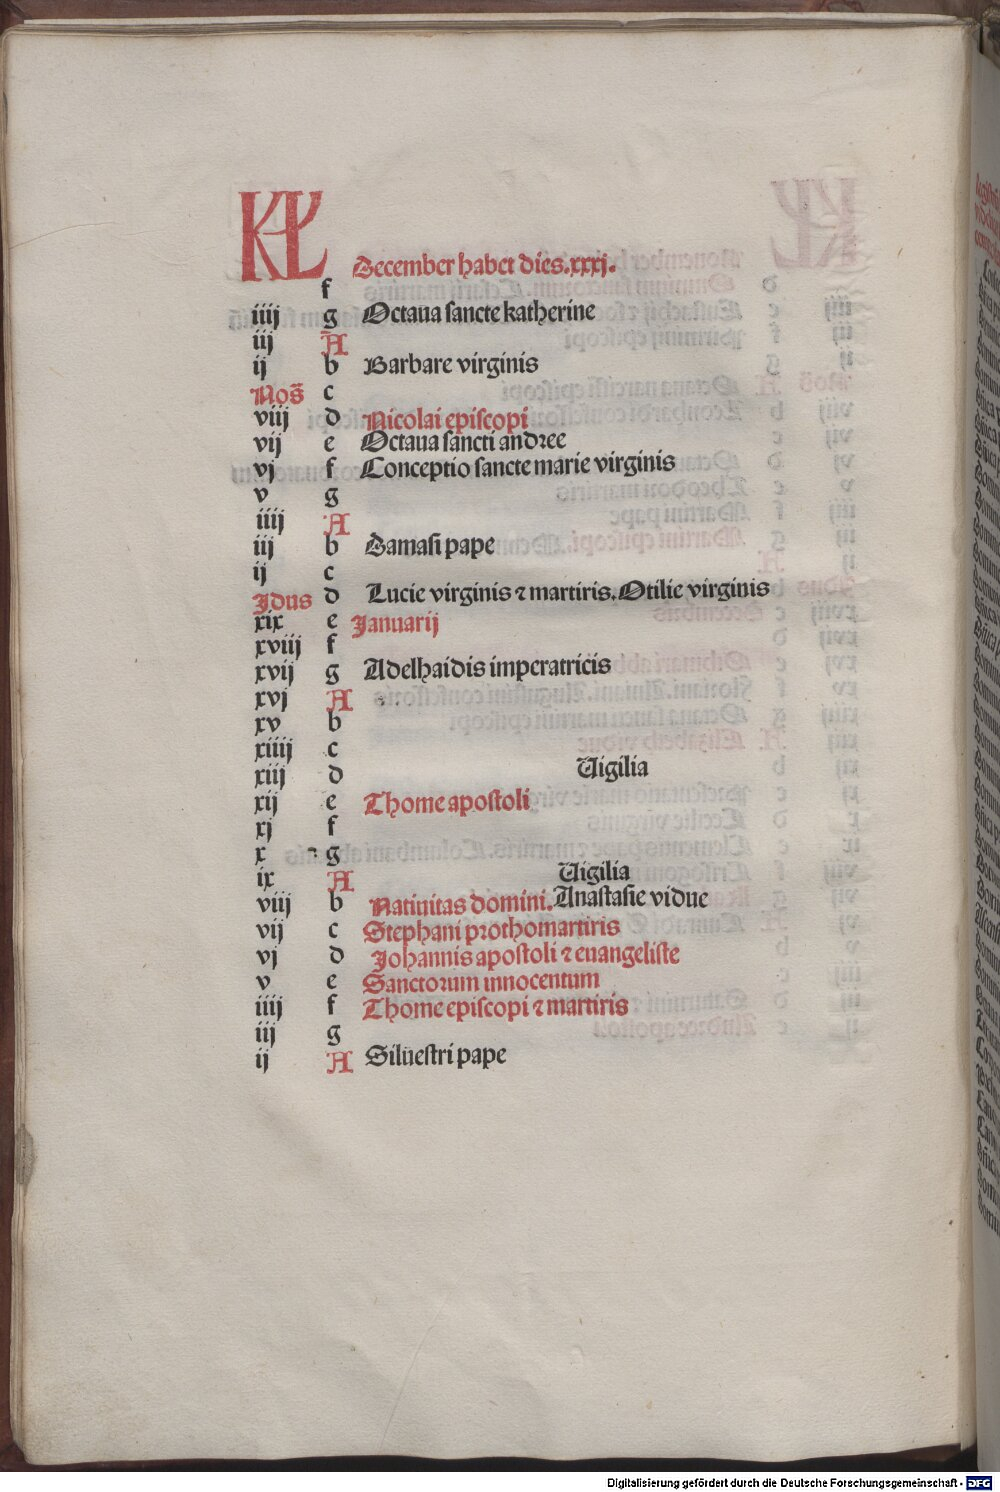 KL December habet dies.xxxj.
f
iiij g Octaua sancte katherine
iij A
ij b Barbare virginis
Nos̄ c
viij d Nicolai episcopi
vij e Octaua sancti andree
vj f Conceptio sancte marie virginis
v g
iiij A
iij b Damasi pape
ij c
Jdus d Lucie virginis ⁊ martiris. Otilie virginis
xix e Januarij
xviij f
xvij g Adelhaidis imperatricis
xvj A
xv b
xiiij c
xiij d Uigilia
xij e Thome apostoli
xj f
x g
ix A Uigilia
viij b Natiuitas domini. Anastasie vidue
vij c Stephani prothomartiris
vj d Johannis apostoli ⁊ euangeliste
v e Sanctorum innocentum
iiij f Thome episcopi ⁊ martiris
iij g
ij A Siluestri pape
Digitalisierung gefördert durch die Deutsche Forschungsgemeinschaft - DFG